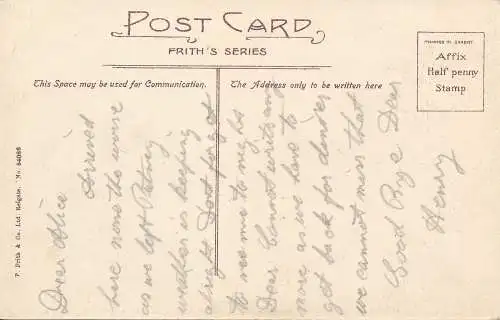 POST CARD
FRITH'S SERIES
This Space may be used for Communication.
The Address only to be written here
PRINTED IN SAXONY
Affix
Half penny
Stamp
F. Frith & Co. Ltd. Reigate. No. 54086
Dear Alice
Arrived
here none the worse
as we left
weather is keeping
alright Dont forget
to see me to night
Dear Cannot write any
more as we have to
get back for dinner
we cannot miss that
Good Bye Dear
Henry